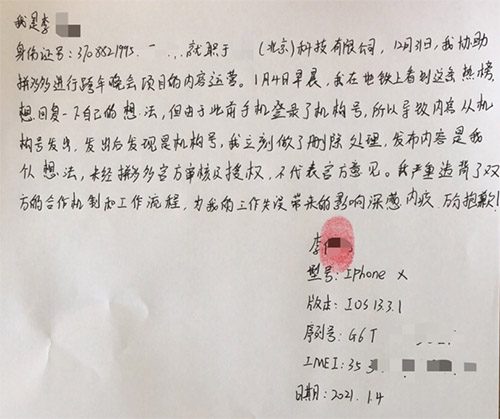 我是李
身份证号：3708821995 就职于 （北京）科技有限公司，12月31日，我协助
拼多多进行跨年晚会项目的内容运营。1月4日早晨，我在地铁上看到这条热榜，
想回复一下自己的想法，但由于此前手机登录了机构号，所以导致内容从机
构号发出，发出后发现是机构号，我立刻做了删除处理，发布内容是我
个人想法，未经拼多多官方审核及授权，不代表官方意见。我严重违背了双
方的合作机制和工作流程，为我的工作失误带来的影响深感内疚 万分抱歉！
李
型号：IPhone X
版本：IOS 13.3.1
序列号：G6T
IMEI：35 3
日期：2021.1.4